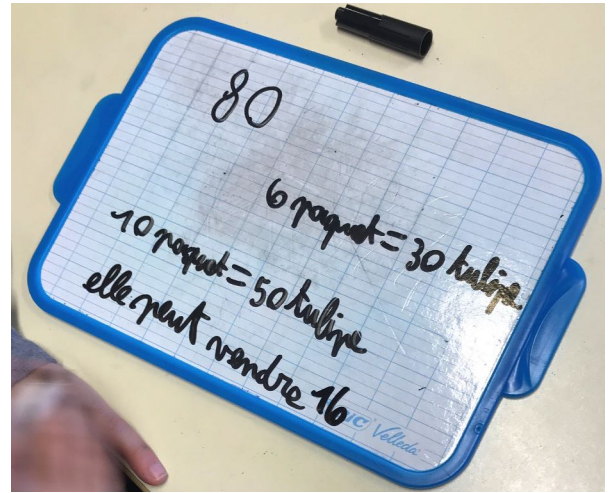 80
6 paquet = 30 tulipe
10 paquet = 50 tulipe
elle peut vendre 16
Velleda